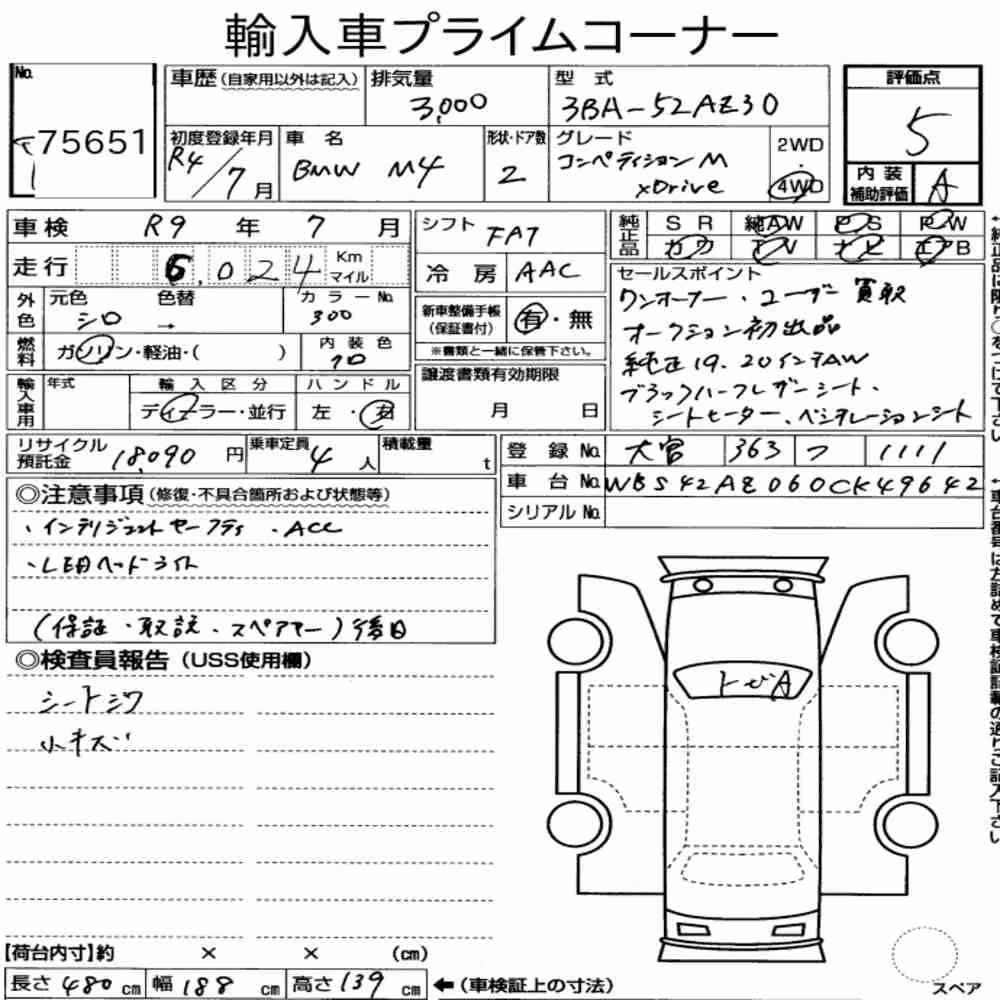 輸入車プライムコーナー
No.
75651
車歴(自家用以外は記入) 排気量 3,000
型式 3BA-52AZ30
評価点 5
初度登録年月 R4/7月
車名 BMW M4
形状・ドア数 2
グレード コンペティションM xDrive
2WD ・ 4WD
内装補助評価 A
車検 R9 年 7 月
シフト FAT
純正品 SR 純AW PS PW
カワ TV ナビ エアB
走行 6,024 Km マイル
冷房 AAC
外色 元色 シロ 色替 → カラーNo. 300
新車整備手帳(保証書付) 有・無
※書類と一緒に保管下さい。
セールスポイント
ワンオーナー・ユーザー買取
オークション初出品
純正19.20インチAW
ブラックハーフレザーシート・
シートヒーター、ベンチレーションシート
燃料 ガソリン・軽油・( ) 内装色 クロ
譲渡書類有効期限 月 日
輸入車用 年式 輸入区分 ディーラー・並行 ハンドル 左・右
リサイクル預託金 18,090円 乗車定員 4人 積載量 t
登録No. 大宮 363 フ 1111
車台No. WBS42AZ060CK49642
シリアルNo.
◎注意事項(修復・不具合箇所および状態等)
・インテリジェントセーフティ ・ACC
・LEDヘッドライト
(保証・取説・スペアキー)後日
◎検査員報告(USS使用欄)
シートシワ
小キズ
トビA
【荷台内寸】約 × × (cm)
長さ 480cm 幅 188cm 高さ 139cm ←(車検証上の寸法)
スペア